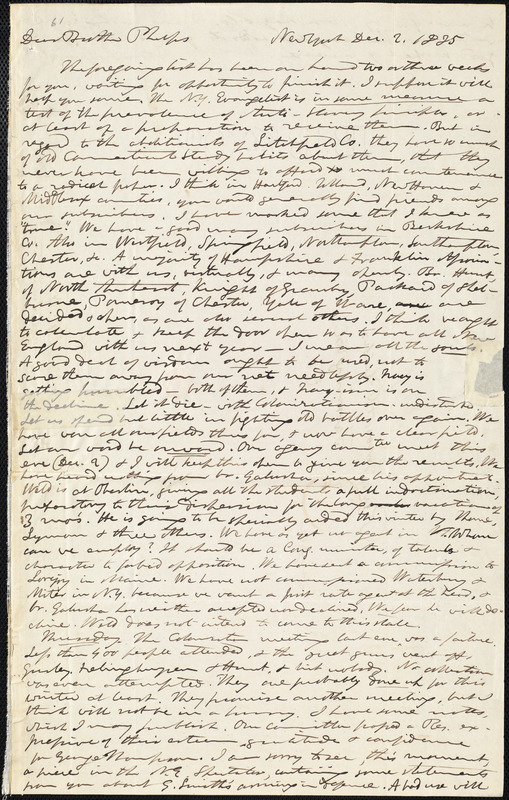 61
Dear Brother Phelps New York Dec. 2, 1835
The foregoing list has been on hand two or three weeks
for you, waiting for opportunity to finish it. I suppose it will
help you some. The N.Y. Evangelist is in some measure a
test of the prevalence of Anti-Slavery principles, or
at least of a preparation to receive them. But in
regard to the abolitionists of Litchfield Co. they have so much
of old Connecticut steady habits about them, that they
never have been willing to afford much countenance
to a radical paper. I think in Hartford, Tolland, New Haven &
Middlesex counties, you would generally find friends among
our subscribers. I have marked some that I know as
"true." We have a good many subscribers in Berkshire
Co. Also in Westfield, Springfield, Northampton, Southampton
Chester, &c. A majority of Hampshire & Franklin Associa-
tions are with us, virtually, & many openly. Br. Hunt
of North Amherst, Knight of Granby, Packard of Shel-
burne, Pomeroy of Chester, Yale of Ware, are
decided & open, as are also several others. I think we ought
to calculate to keep the door open so as to have all New
England with us next year — I mean all the souls.
A good deal of wisdom ought to be used, not to
scare them away from our net needlessly.
both of them, &
the decline. Let it die — with Colonization — undisturbed.
Let us spend but little in fighting old battles over again. We
have won all our fields thus far, & now have a clear field.
Let our word be onward. Our agency com'tee meet this
eve (Dec. 2) & I will keep this open to give you the results. We
have heard nothing from br. Galusha, since his appointment.
Weld is at Oberlin, giving all the students a full indoctrination,
preparatory to their dispersion for the long vacation of
3 mo's. He is going to be specially aided this winter by Thome,
Lyman & three others. We have as yet no agent in Vt. Whom
can we employ? It should be a Cong. minister, of talents &
character to forbid opposition. We have sent a commission to
Lovejoy in Maine. We have not commissioned Waterbury &
Miter in N.Y. because we want a first rate agent at the head, &
br. Galusha has neither accepted nor declined. We fear he will de-
cline. Ward does not intend to come to this state.
Thursday. The Colonization meeting last eve, was a failure.
Less than 400 people attended, & the great guns went off,
Gurley, Frelinghuysen & Hunt, & hit nobody. No collection
was even attempted. They are probably done up for this
winter at least. They promise another meeting, but I
think will not be in a hurry. I have some notes,
which I may publish. Our committee passed a Res. ex-
pressive of their esteem, gratitude & confidence
for George Thompson. I am sorry to see, this moment,
a piece in the N.E. Spectator, some statements
from you about G. Smith's in defence. A bad use will